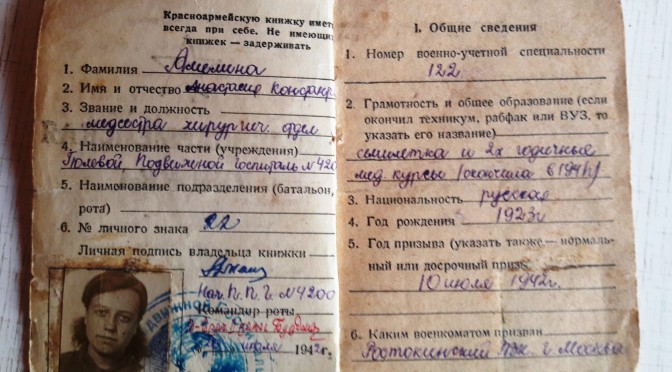 Красноармейскую книжку имет
всегда при себе. Не имеющи
книжек — задерживать
1. Фамилия Амелина
2. Имя и отчество Анастасия Константи
3. Звание и должность
медсестра хирургич. отдел
4. Наименование части (учреждения)
Полевой Подвижной госпиталь № 420
5. Наименование подразделения (батальон,
рота)
6. № личного знака 22
Личная подпись владельца книжки
Нач. П.П.Г. № 4200
Командир роты
июля 1942г
I. Общие сведения
1. Номер военно-учетной специальности
122
2. Грамотность и общее образование (если
окончил техникум, рабфак или ВУЗ, то
указать его название)
семилетка и 2х годичные
мед курсы (окончила в 1941г)
3. Национальность русская
4. Год рождения 1923г
5. Год призыва (указать также — нормаль-
ный или досрочный призы
10 июля 1942г.
6. Каким военкоматом призван
Ростокинский РВК г. Москва